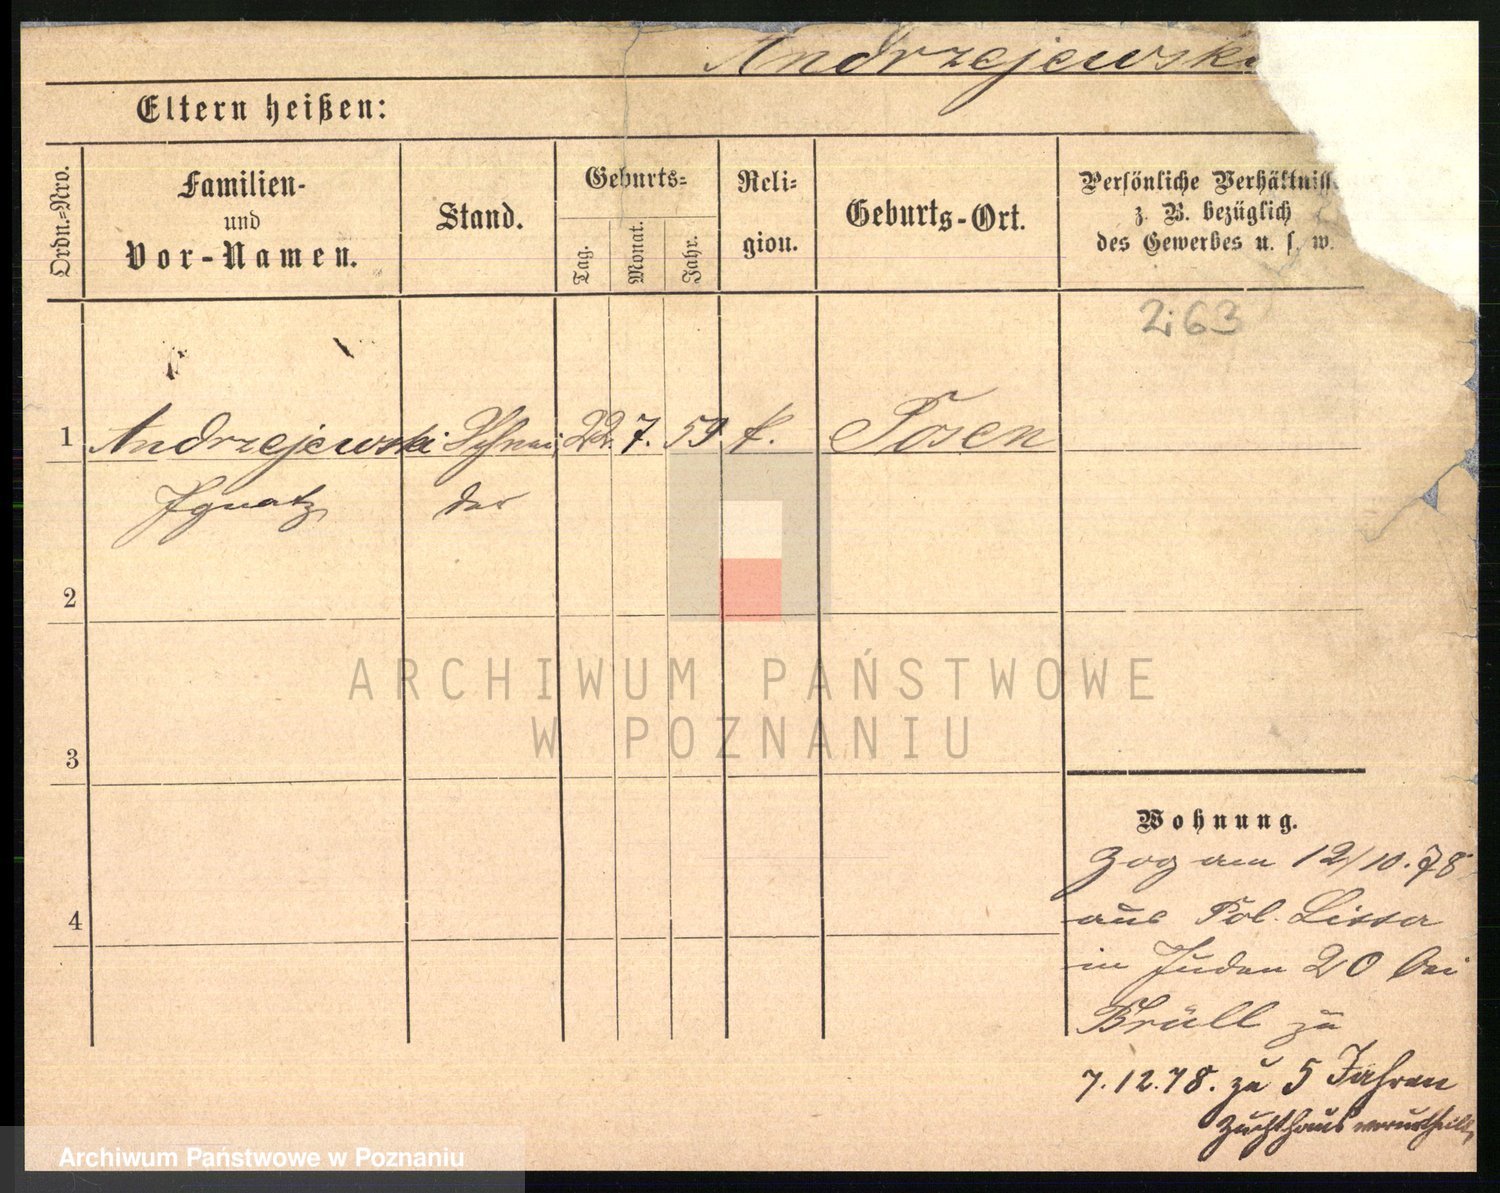 Andrzejewski
Eltern heißen:
Ordn.=Nro.
Familien-
und
Vor-Namen.
Stand.
Geburts=
Tag.
Monat.
Jahr.
Reli=
gion.
Geburts-Ort.
Persönliche Verhältnisse
z. B. bezüglich
des Gewerbes u. s. w.
263
1 Andrzejewski Schnei 22. 7. 59 k. Posen
Ignatz der
2
3
4
Wohnung.
Zog am 12/10.78
aus Pol. Lissa
in Juden 20 bei
Brüll zu
7.12.78. zu 5 Jahren
Zuchthaus verurtheilt
ARCHIWUM PAŃSTWOWE
W POZNANIU
Archiwum Państwowe w Poznaniu